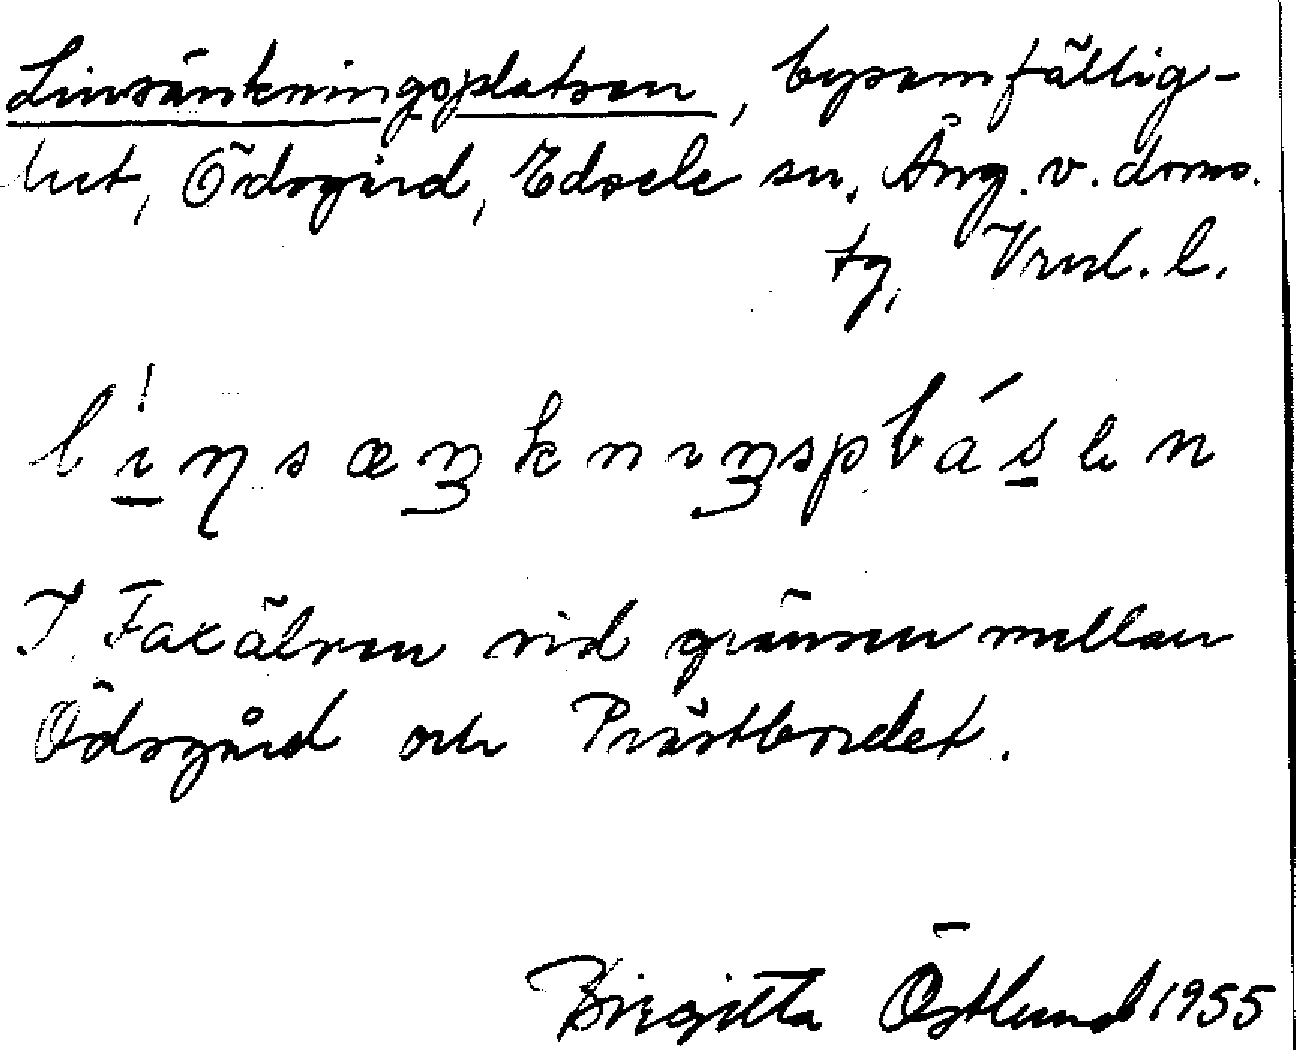 Linsänkningsplatsen, bysamfällig-
het, Ödsgård, Edsele sn, Ång. v. doms.
tg,
l i̱ŋsæŋkniŋsplás̱en
I Faxälven vid gränsen mellan
Ödsgård och Prästbordet.
Birgitta Östlund 1955